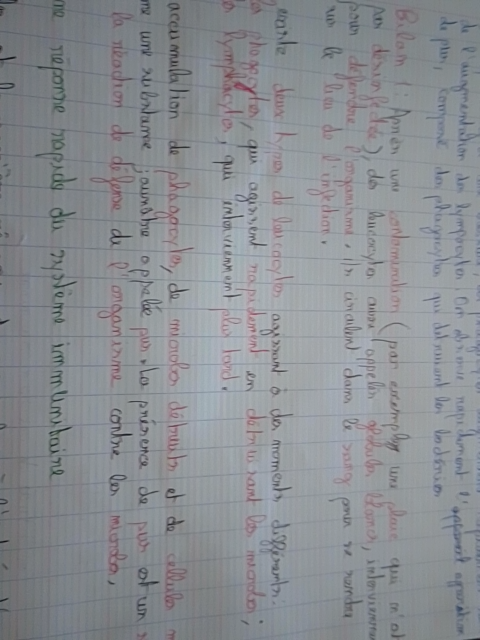 de l'augmentation des lymphocytes. On observe rapidement l'apparent
de pus, composé des phagocytes qui détruisent les bactéries
Bilan 1 : Après une contamination (par exemple une plaie qui n'est
pas désinfectée), des leucocytes aussi appelés globules blancs, interviennent
pour défendre l'organisme, ils circulent dans le sang pour se rendre
sur le lieu de l'infection.
existe deux types de leucocytes agissant à des moments différents.
phagocytes, qui agissent rapidement en détruisant les microbes ;
lymphocytes, qui interviennent plus tard.
accumulation de phagocytes, de microbes détruits et de cellules
me une substance jaunâtre appelée pus. La présence de pus est un
la réaction de défense de l'organisme contre les microbes,
ne réponse rapide du système immunitaire